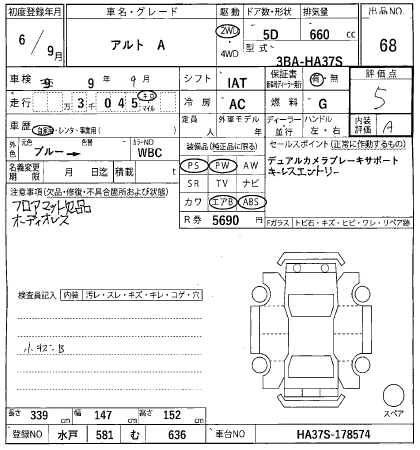 初度登録年月 車名・グレード 駆動 ドア数・形状 排気量 出品NO.
6/9月 アルト A 2WD 4WD 5D 660 cc 68
型式 3BA-HA37S
車検 9 9年 9月 シフト IAT 保証書 有・無 評価点
走行 万 3千 045 キロ マイル 冷房 AC 燃料 G 5
車歴 自家用・レンタ・事業用( ) 定員 人 外車モデル 年 ディーラー 並行 ハンドル 左・右 内装評価 A
外色 元色 ブルー→ 色替 カラーNO WBC 装備品(純正品に限る) セールスポイント(正常に作動するもの)
名義変更期限 月 日迄 積載 t PS PW AW デュアルカメラブレーキサポート
キーレスエントリー
注意事項(欠品・修復・不具合箇所および状態) SR TV ナビ
フロアマット欠品 カワ エアB ABS
オーディオレス R券 5690円 Fガラス トビ石・キズ・ヒビ・ワレ・リペア跡
検査員記入 内装 汚レ・スレ・キズ・キレ・コゲ・穴
小キズB
スペア
長さ 339 cm 幅 147 cm 高さ 152 cm
登録NO 水戸 581 む 636 車台NO HA37S-178574